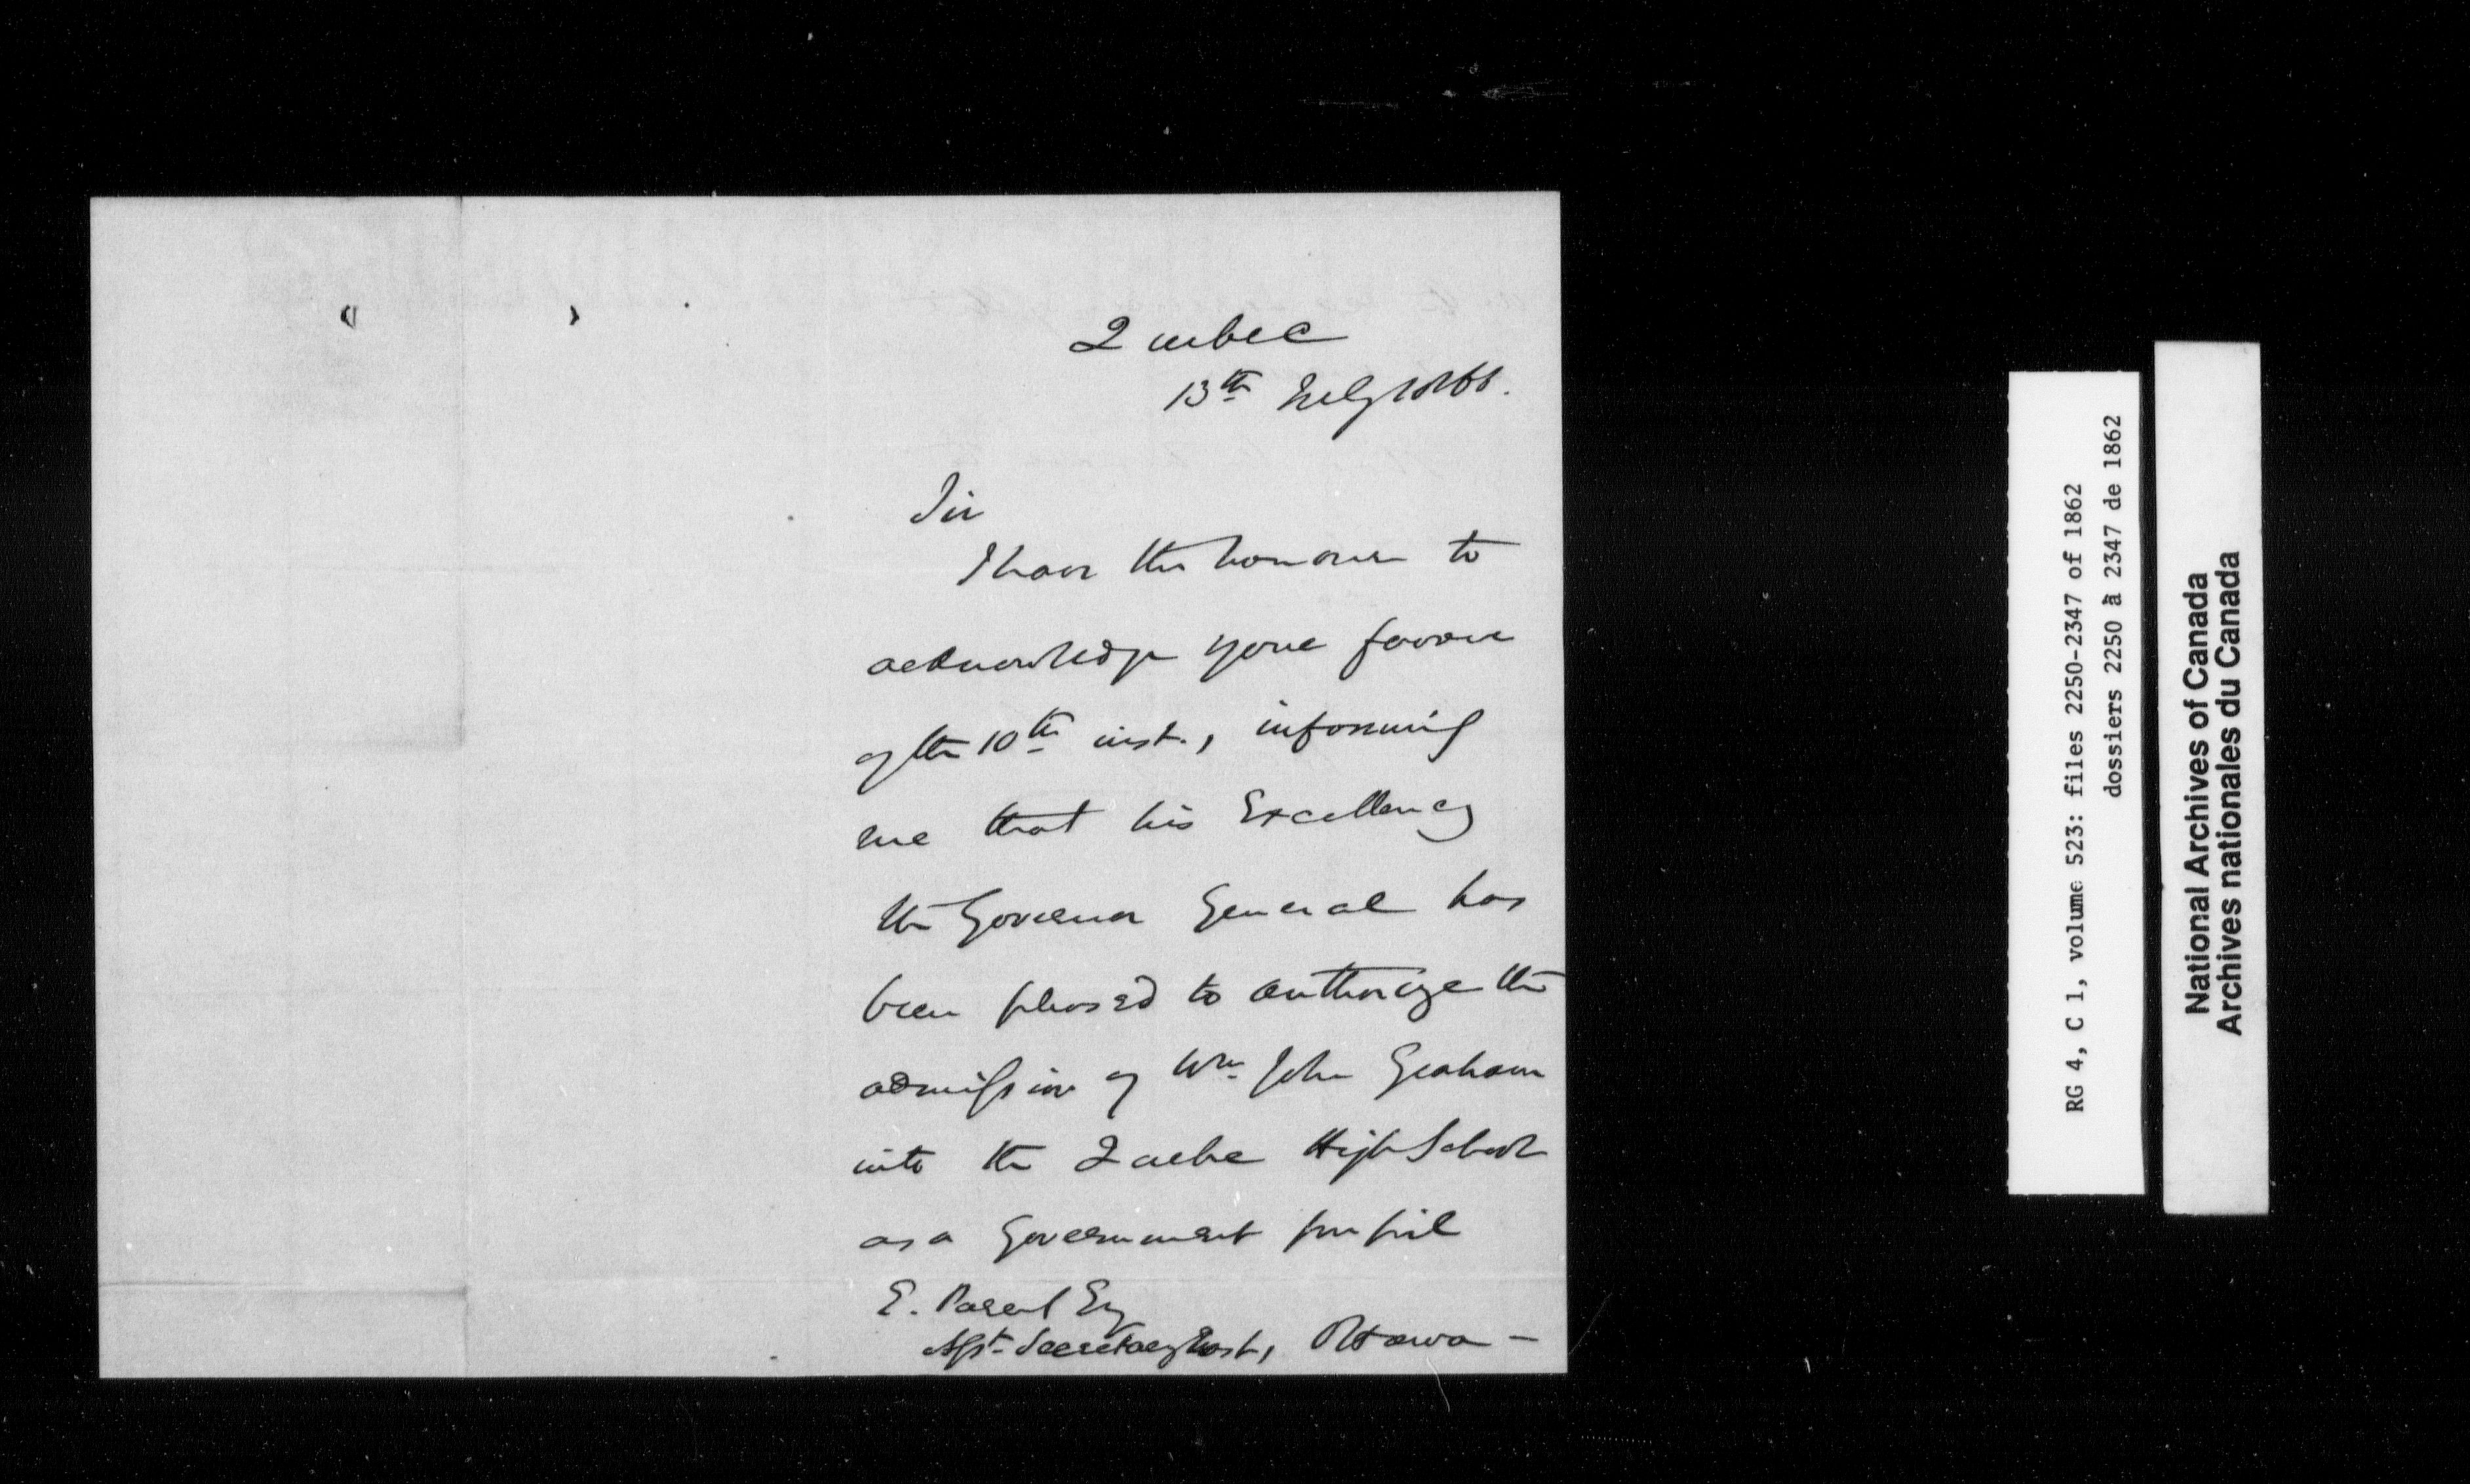 Quebec
13th July 1866.
Sir
I have the honour to
acknowledge your favour
of the 10th inst., informing
me that his Excellency
the Governor General has
been pleased to authorize the
admission of Wm. John Graham
into the Quebec High School
as a Government pupil
E. Parent Esq
Asst. Secretary East, Ottawa —
RG 4, C 1, volume 523: files 2250-2347 of 1862
dossiers 2250 à 2347 de 1862
National Archives of Canada
Archives nationales du Canada